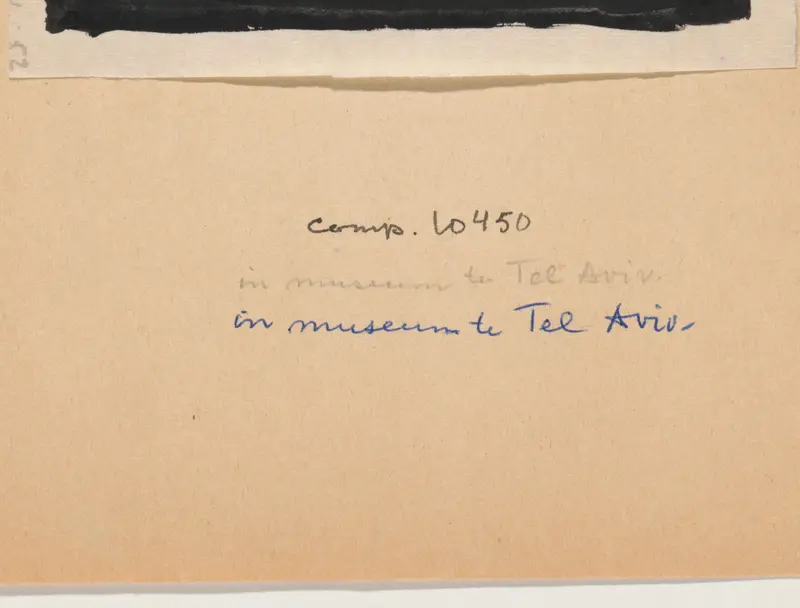 comp. 10450
in museum te Tel Aviv.
in museum te Tel Aviv.